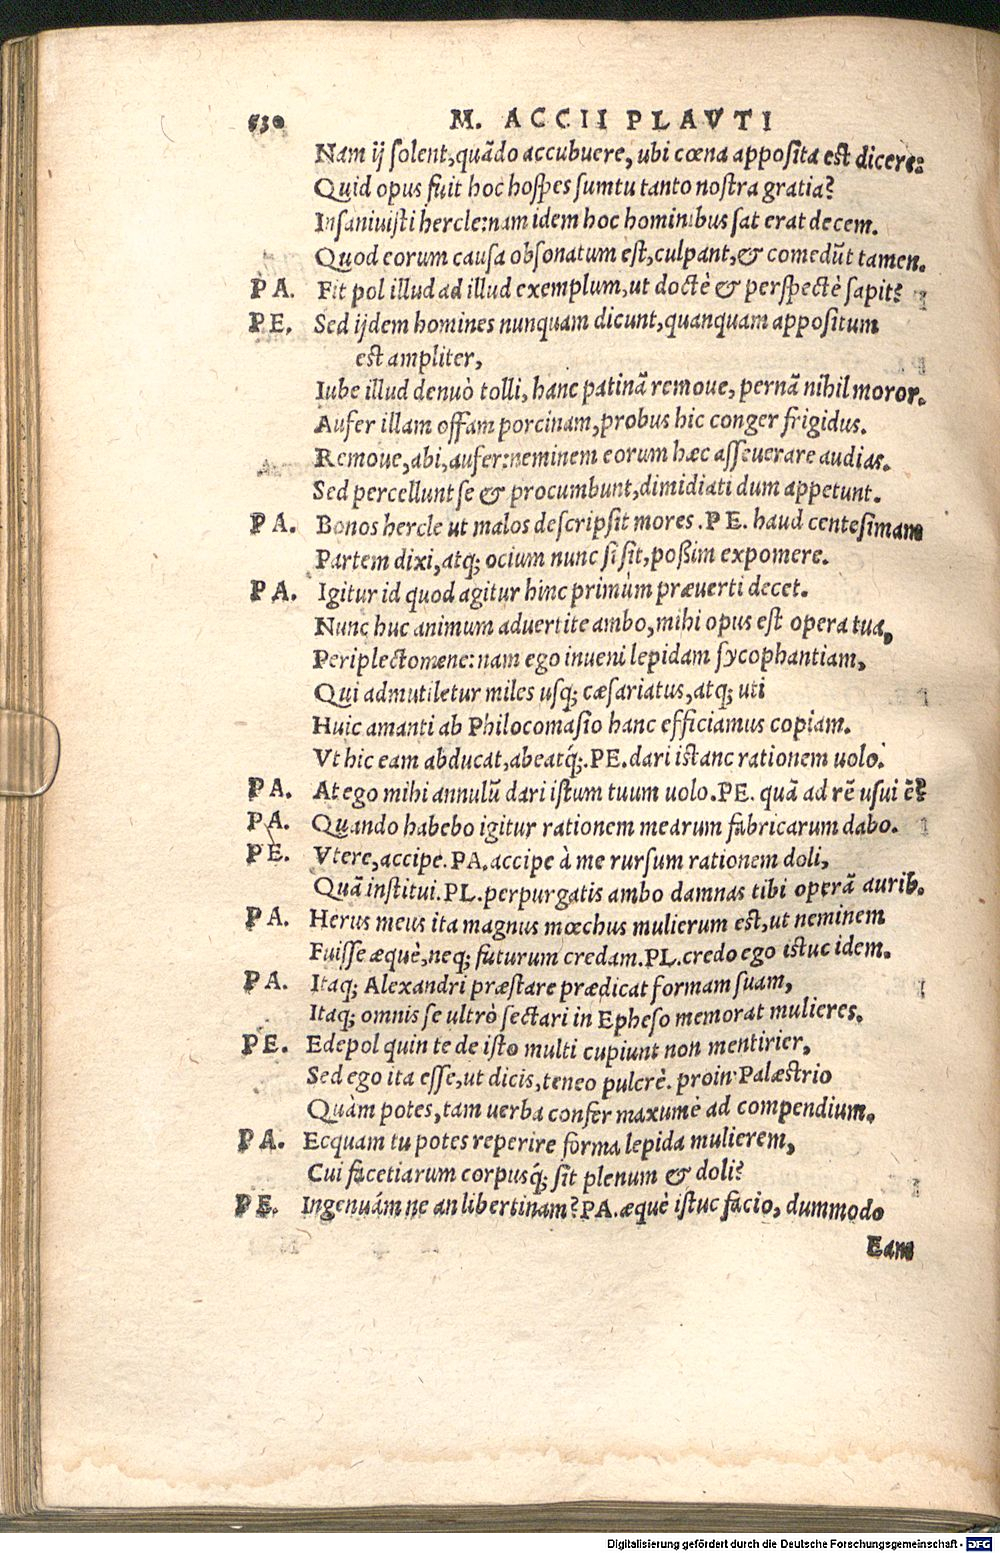 530 M. ACCII PLAVTI
Nam ij ſolent, quãdo accubuere, ubi cœna appoſita eſt dicere:
Quid opus fuit hoc hoſpes ſumtu tanto noſtra gratia?
Inſaniuiſti hercle: nam idem hoc hominibus ſat erat decem.
Quod eorum cauſa obſonatum eſt, culpant, & comedũt tamen.
PA. Fit pol illud ad illud exemplum, ut doctè & perſpectè ſapit?
PE. Sed ijdem homines nunquam dicunt, quanquam appoſitum
eſt ampliter,
Iube illud denuò tolli, hanc patinã remoue, pernã nihil moror.
Aufer illam offam porcinam, probus hic conger frigidus.
Remoue, abi, aufer: neminem eorum hæc aſſeuerare audias.
Sed percellunt ſe & procumbunt, dimidiati dum appetunt.
PA. Bonos hercle ut malos deſcripſit mores. PE. haud centeſimam
Partem dixi, atq; ocium nunc ſi ſit, poßim expomere.
PA. Igitur id quod agitur hinc primùm præuerti decet.
Nunc huc animum aduertite ambo, mihi opus eſt opera tua,
Periplectomene: nam ego inueni lepidam ſycophantiam,
Qui admutiletur miles uſq; cæſariatus, atq; uti
Huic amanti ab Philocomaſio hanc efficiamus copiam.
Vt hic eam abducat, abeatq́;. PE. dari iſtanc rationem uolo.
PA. At ego mihi annulũ dari iſtum tuum uolo. PE. quã ad rẽ uſui ẽ?
PA. Quando habebo igitur rationem mearum fabricarum dabo.
PE. Vtere, accipe. PA. accipe à me rurſum rationem doli,
Quã inſtitui. PL. perpurgatis ambo damnas tibi operã aurib.
PA. Herus meus ita magnus mœchus mulierum eſt, ut neminem
Fuiſſe æquè, neq; futurum credam. PL. credo ego iſtuc idem.
PA. Itaq; Alexandri præſtare prædicat formam ſuam,
Itaq; omnis ſe ultrò ſectari in Epheſo memorat mulieres.
PE. Edepol quin te de iſto multi cupiunt non mentirier,
Sed ego ita eſſe, ut dicis, teneo pulcrè. proin Palæſtrio
Quàm potes, tam uerba confer maxumè ad compendium.
PA. Ecquam tu potes reperire forma lepida mulierem,
Cui facetiarum corpusq́; ſit plenum & doli?
PE. Ingenuám ne an libertinam? PA. æquè iſtuc facio, dummodo
Eam
Digitalisierung gefördert durch die Deutsche Forschungsgemeinschaft - DFG